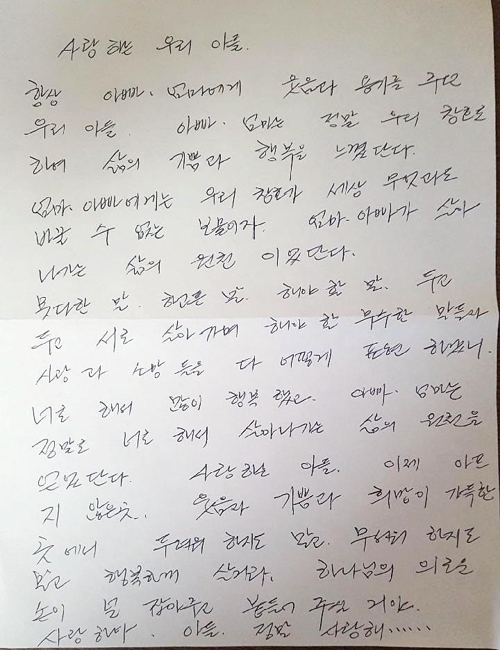 사랑하는 우리 아들.
항상 아빠. 엄마에게 웃음과 용기를 주던
우리 아들. 아빠. 엄마는 정말 우리 창호로
하여 삶의 기쁨과 행복을 느꼈단다.
엄마. 아빠에게는 우리 창호가 세상 무엇과도
바꿀 수 없는 보물이자. 엄마. 아빠가 살아
나가는 삶의 원천 이였단다.
못다한 말. 하고픈 말. 해야 할 말. 두고
두고 서로 살아가며 해야 할 무수한 말들과
사랑과 소망 들을 다 어떻게 표현 하겠니.
너로 해서 많이 행복했고. 아빠. 엄마는
정말로 너로 해서 살아나가는 삶의 원천을
얻었단다. 사랑하는 아들. 이제 아프
지 않은곳. 웃음과 기쁨과 희망이 가득한
곳에니 두려워 하지도 말고. 무서워 하지도
말고 행복하게 살거라. 하나님의 의로운
손이 널 잡아주고 붙들어 주실 거야.
사랑한다. 아들. 정말 사랑해......